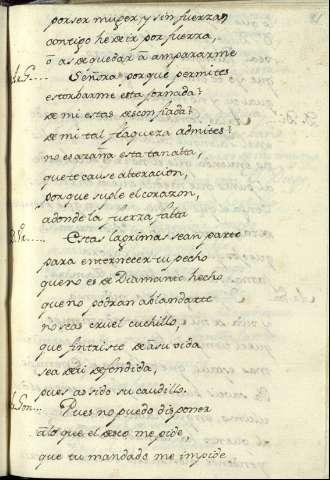 por ser muger, y sin fuerzas
contigo he de ir por fuerza,
o as de quedar a ampararme
Señora porque permites
estorbarme esta jornada?
de mi estas desconfiada?
de mi tal flaqueza admites?
no es hazaña esta tan alta,
que te cause alteracion,
porque suple el corazon,
adonde la fuerza falta
Estas lagrimas sean parte
para enternecer tu pecho
que no es de Diamante hecho
que no podran ablandarte
no seas cruel cuchillo,
que fin triste de a su vida
sea de ti defendida,
pues as sido su caudillo.
Gon... Pues no puedo disponer
a lo que el deseo me pide,
que tu mandado me impide